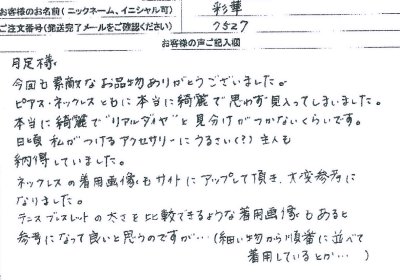 お客様のお名前(ニックネーム、イニシャル可) 彩華
ご注文番号(発送完了メールをご確認ください)
お客様の声ご記入欄
月足様
今回も素敵なお品物ありがとうございました。
ピアス・ネックレスともに本当に綺麗で思わず見入ってしまいました。
本当に綺麗で"リアルダイヤ"と見分けがつかないくらいです。
日頃私がつけるアクセサリーにうるさい(?)主人も
納得していました。
ネックレスの着用画像もサイトにアップして頂き、大変参考に
なりました。
テニスブレスレットの太さを比較できるような着用画像もあると
参考になって良いと思うのですが…(細い物から順番に並べて
着用しているとか…)